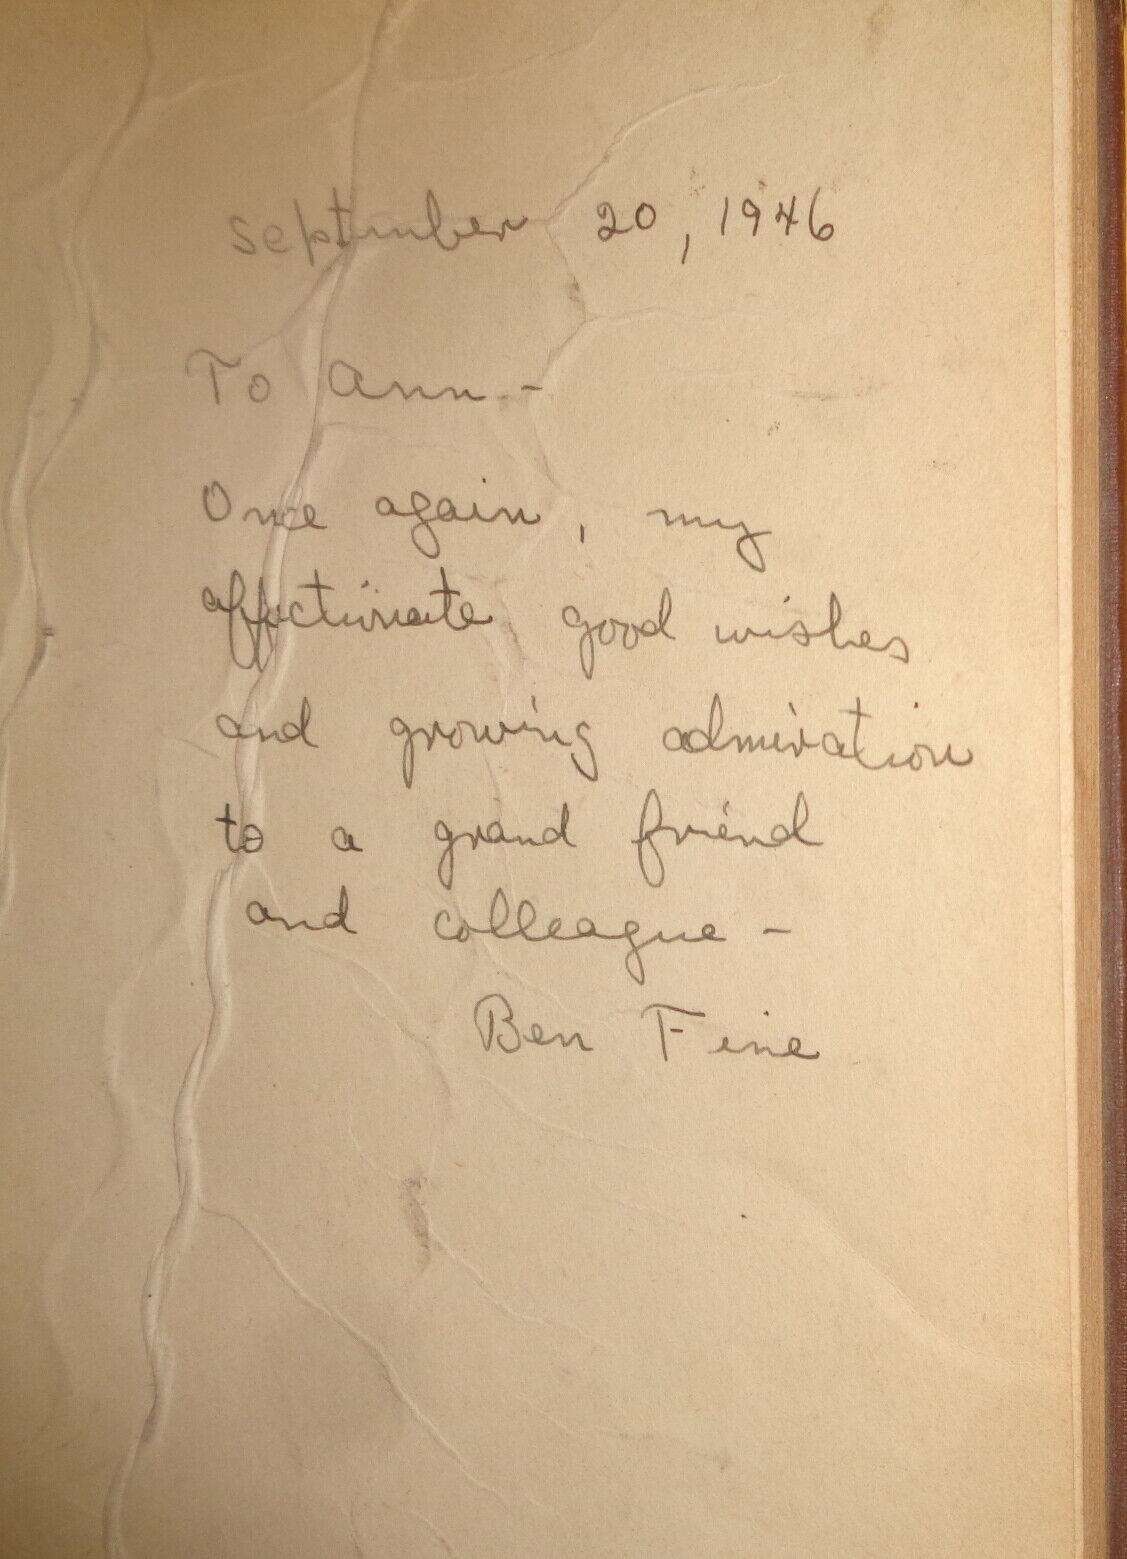 September 20, 1946
To Ann -
Once again, my
affectionate good wishes
and growing admiration
to a grand friend
and colleague -
Ben Fine